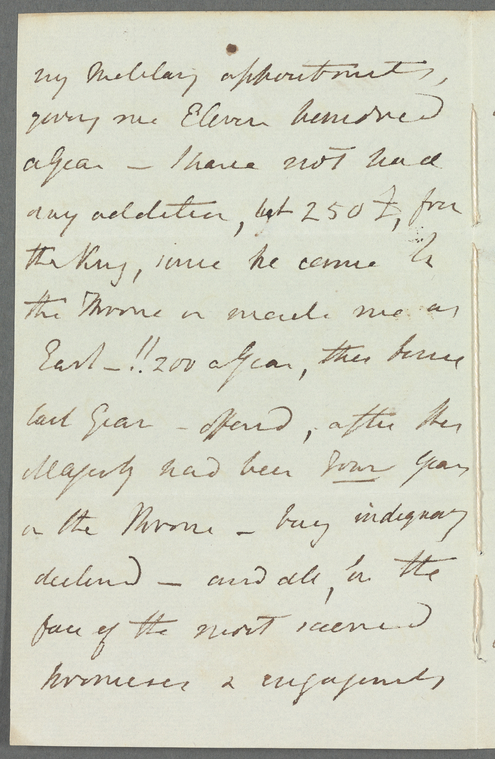 my Military appointments,
giving me Eleven hundred
a Year – I have not had
any addition, but 250 £, from
the King, since he came to
the Throne or made me an
Earl –!! 200 a Year, this time
last Year – offered, after His
Majesty had been four Years
on the Throne – being indignantly
declined – and all, in the
face of the most sacred
promises & engagements